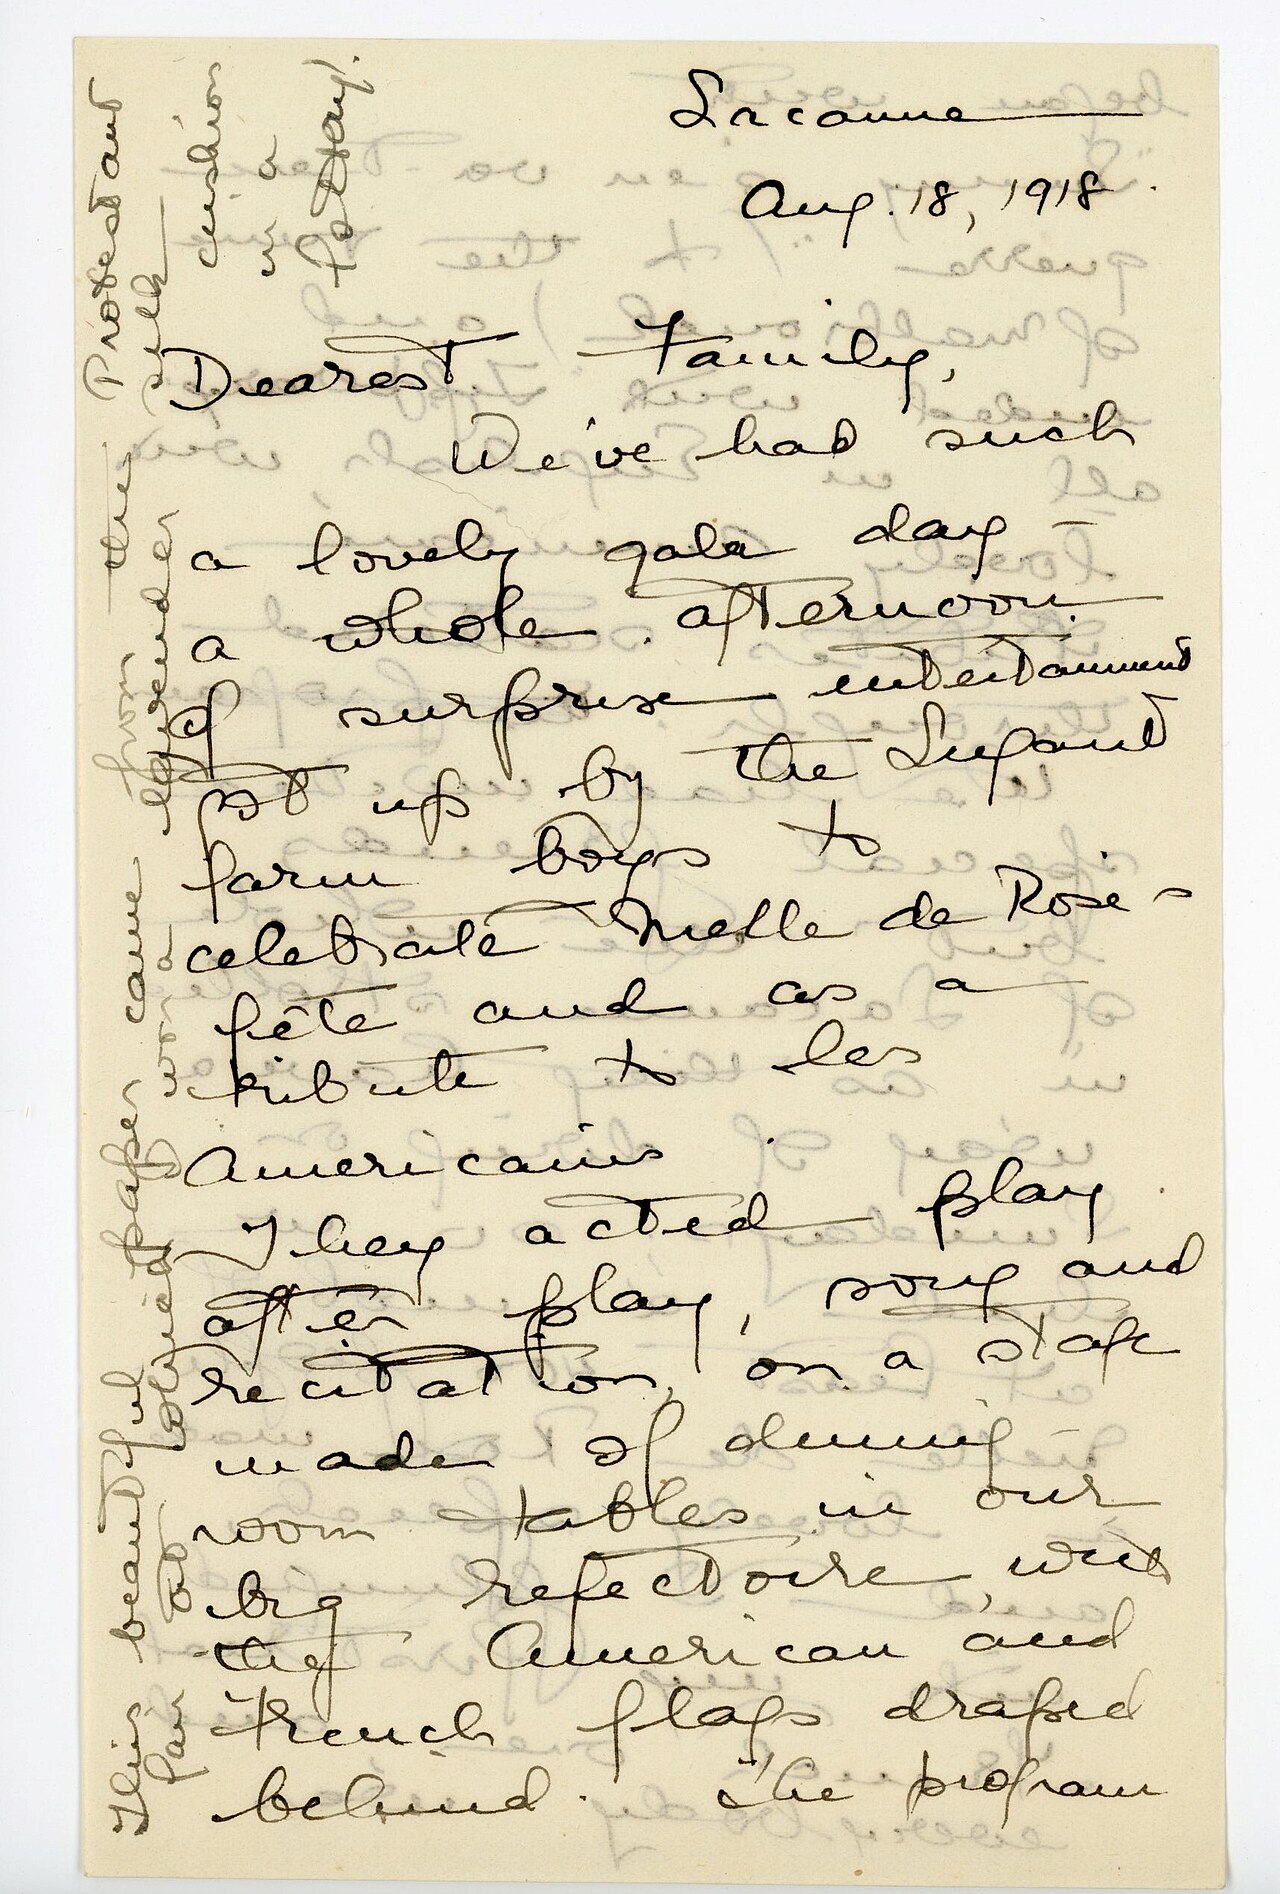 Lacaune
Aug. 18, 1918.
Dearest Family,
We've had such
a lovely gala day –
a whole afternoon
of surprise entertainment
got up by the Sugant
farm boys to
celebrate Melle de Rose's
fête and as a
tribute to les
Americains.
They acted play
after play, song and
recitation, on a stage
made of dining-
room tables in our
big refectoire, with
the American and
French flags draped
behind. The program
This beautiful paper came from the Protestant
fair at which I won a lavender silk
cushion
in a
potday!